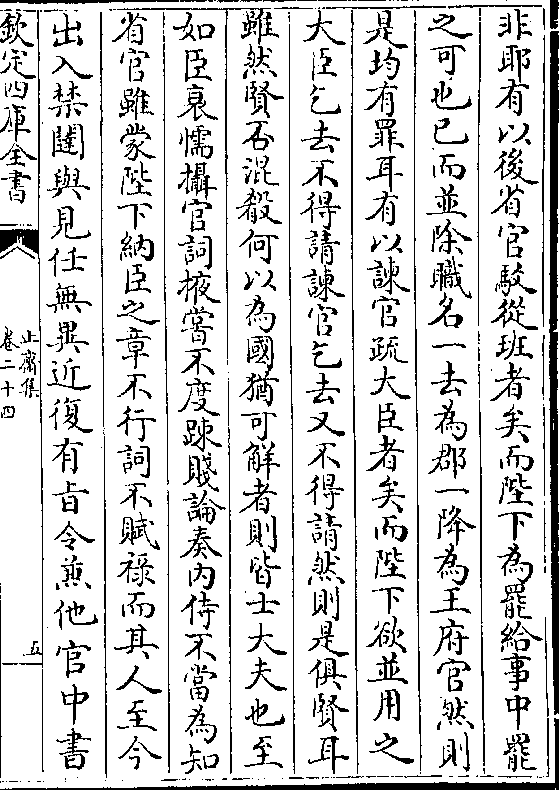 非耶有以後省官駁從班者矣而陛下為罷給事中罷
之可也已而並除職名一去為郡一降為王府官然則
是均有罪耳有以諫官疏大臣者矣而陛下欲並用之
大臣乞去不得請諫官乞去又不得請然則是俱賢耳
雖然賢否混殽何以為國猶可解者則皆士大夫也至
如臣衰懦攝官詞掖嘗不度踈賤論奏内侍不當為知
省官雖蒙陛下納臣之章不行詞不賦祿而其人至今
出入禁闥與見任無異近復有旨令兼他官中書
欽定四庫全書
止齋集
卷二十四
五